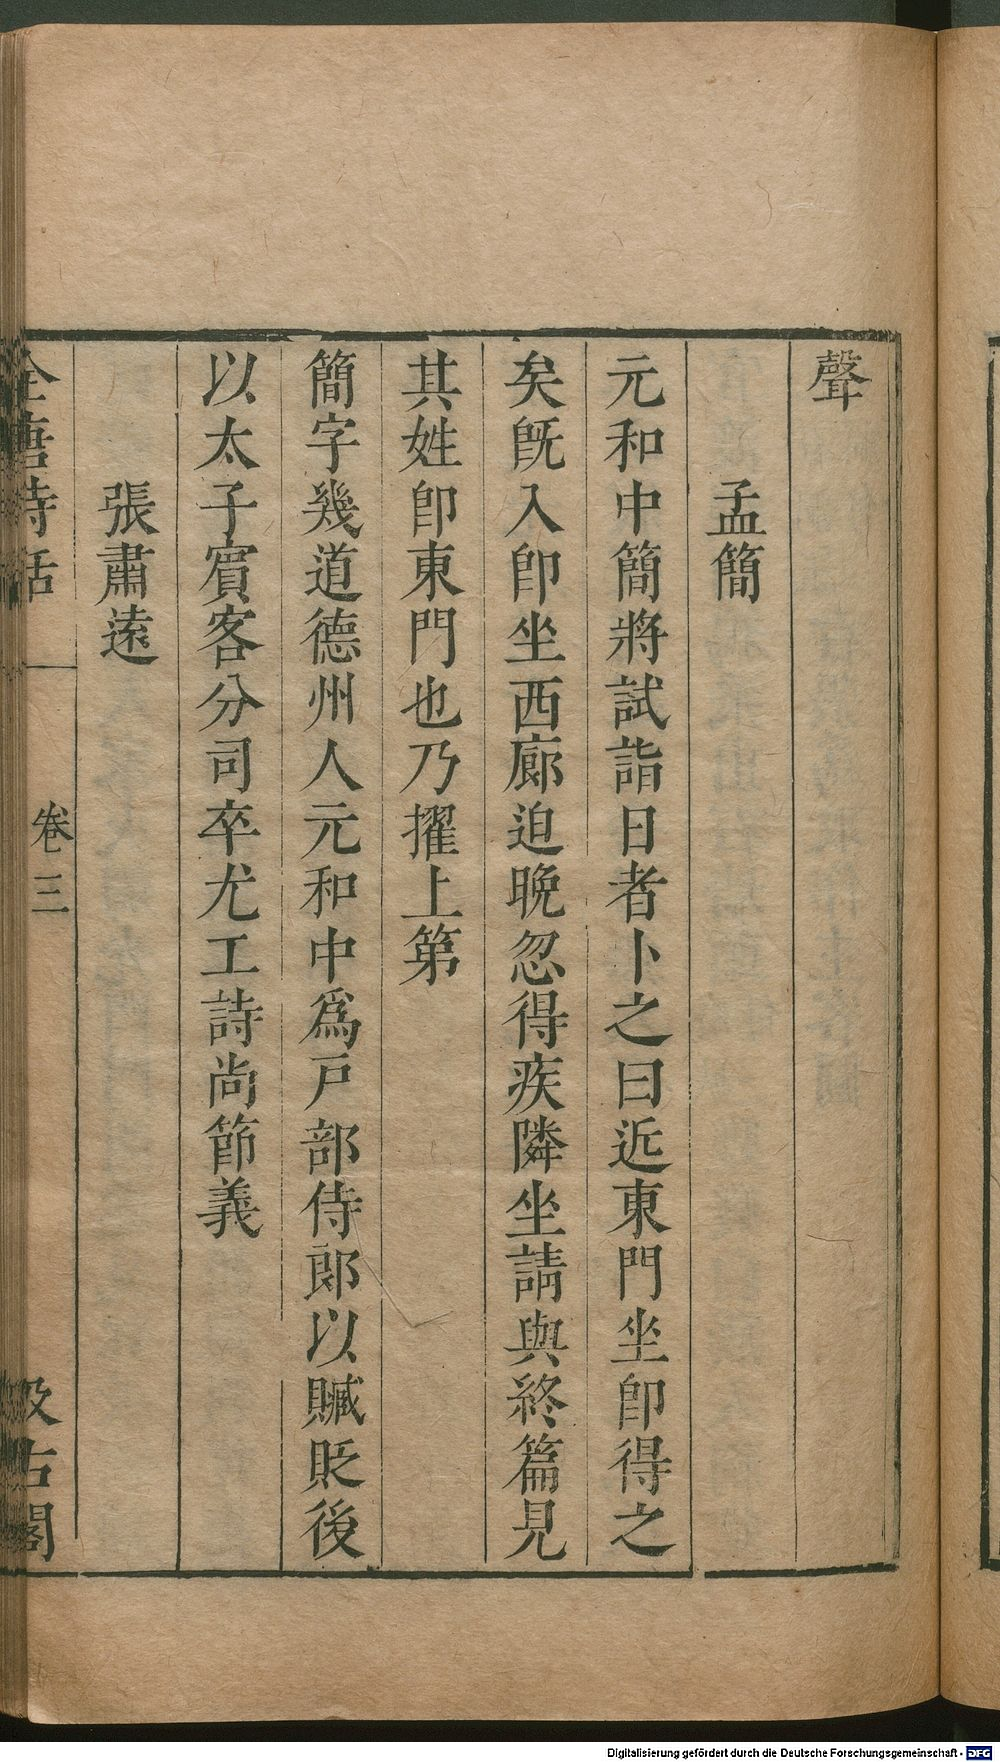 聲
孟簡
元和中簡將試詣日者卜之曰近東門坐卽得之
矣旣入卽坐西廊迫晚忽得疾隣坐請與終篇見
其姓卽東門也乃擢上第
簡字幾道德州人元和中爲戸部侍郎以贓貶後
以太子賓客分司卒尤工詩尚節義
張肅遠
全唐詩話 卷三 汲古閣
Digitalisierung gefördert durch die Deutsche Forschungsgemeinschaft - DFG